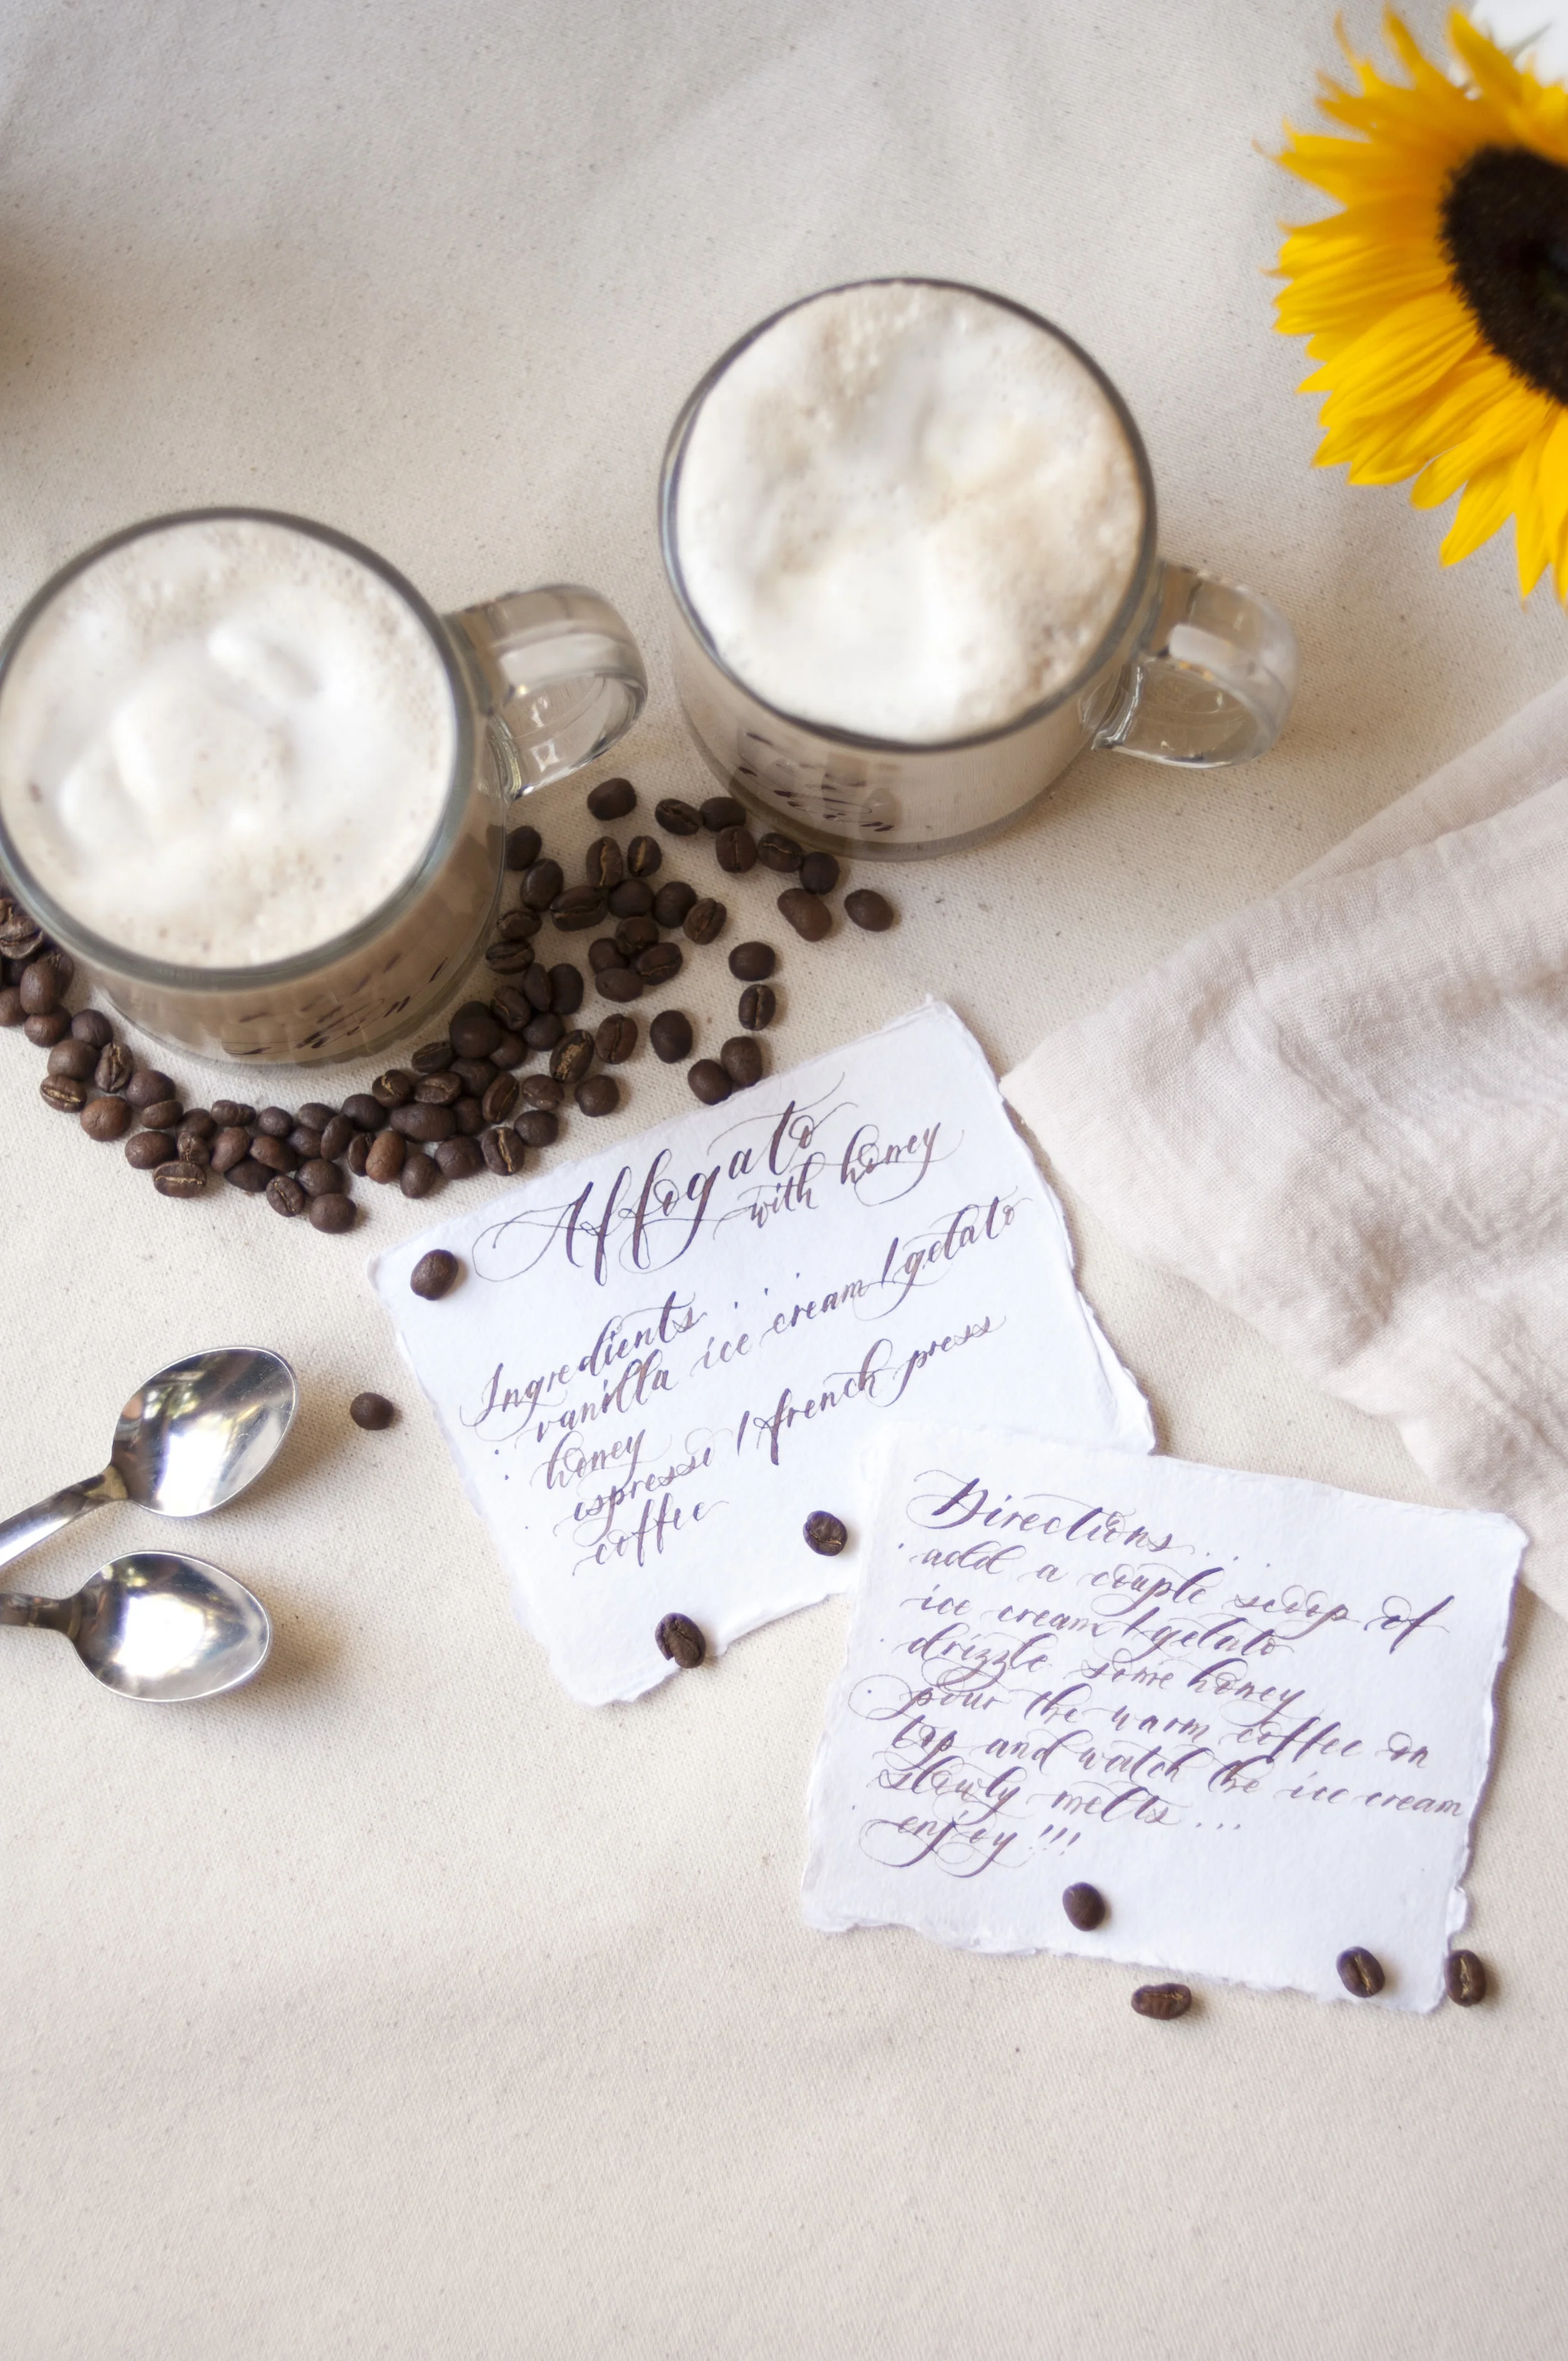 Affogato
with honey
Ingredients...
· vanilla ice cream / gelato
· honey
· espresso / french press
coffee
Directions...
· add a couple scoop of
ice cream / gelato
· drizzle some honey
· pour the warm coffee on
top and watch the ice cream
slowly melts...
· enjoy!!!